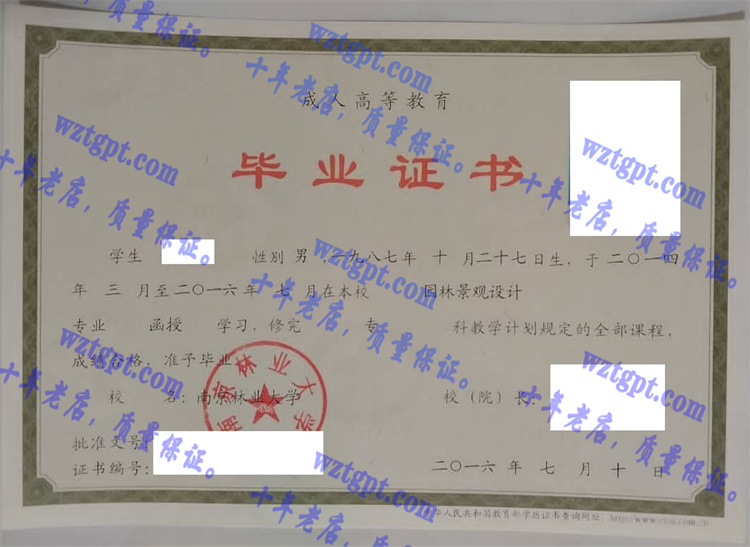 成人高等教育
毕业证书
学生 性别 男 ,一九八七年 十 月二十七日生，于二〇一四
年 三 月至二〇一六年 七 月在本校 园林景观设计
专业 函授 学习，修完 专 科教学计划规定的全部课程，
成绩合格，准予毕业。
校 名：南京林业大学 校（院）长：
批准文号：
证书编号： 二〇一六 年 七 月 十 日
中华人民共和国教育部学历证书查询网址：
南京林业大学
wztgpt.com
十年老店，质量保证。
wztgpt.com
十年老店，质量保证。
wztgpt.com
十年老店，质量保证。
wztgpt.com
十年老店，质量保证。
wztgpt.com
十年老店，质量保证。
wztgpt.com
十年老店，质量保证。
wztgpt.com
十年老店，质量保证。
wztgpt.com
十年老店，质量保证。
wztgpt.com
十年老店，质量保证。